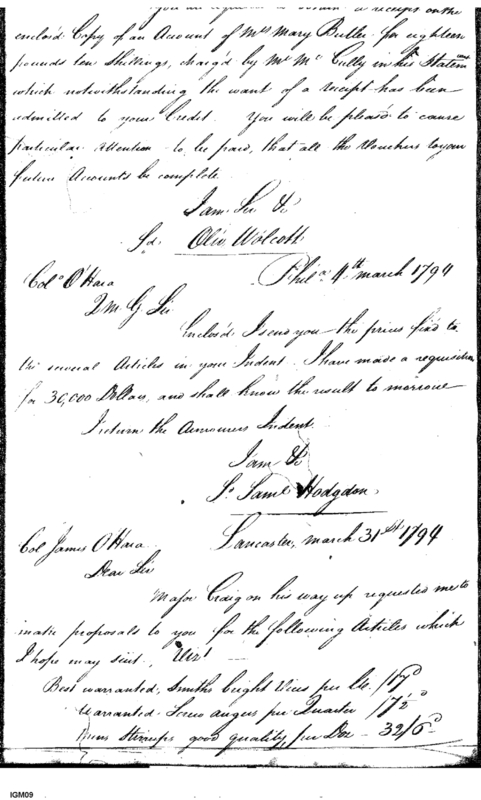 You are requested to obtain a receipt on the
enclosd Copy of an Account of Mrs Mary Butler for eighteen
pounds ten Shillings, charg'd by Mr McCully in his Statemt
which notwithstanding the want of a receipt has been
admitted to your Credit. You will be please to cause
particular attention to be paid, that all the Vouchers to your
future Accounts be complete.
I am Sir &c
Sd. Oliv Wolcott
Phila. 4th march 1794
Colo. O'Hara
Q M G Sir
Enclos'd I send you the prices fix'd to
the several Articles in your Indent. I have made a requisition
for 30,000 Dollars, and shall know the result to morrow
I return the Armourers Indent.
I am &c
Sd. Saml Hodgdon
Lancaster, march 31st 1794
Col James O'Hara
Dear Sir
Major Craig on his way up requested me to
make proposals to you for the following Articles which
I hope may suit, Vizt
Best warranted, Smiths bright Vices per lb. /17d
Warranted Screw augers per Quarter /7½d
Mens Stirrups good quality, per Doz - 32/6d
IGM09